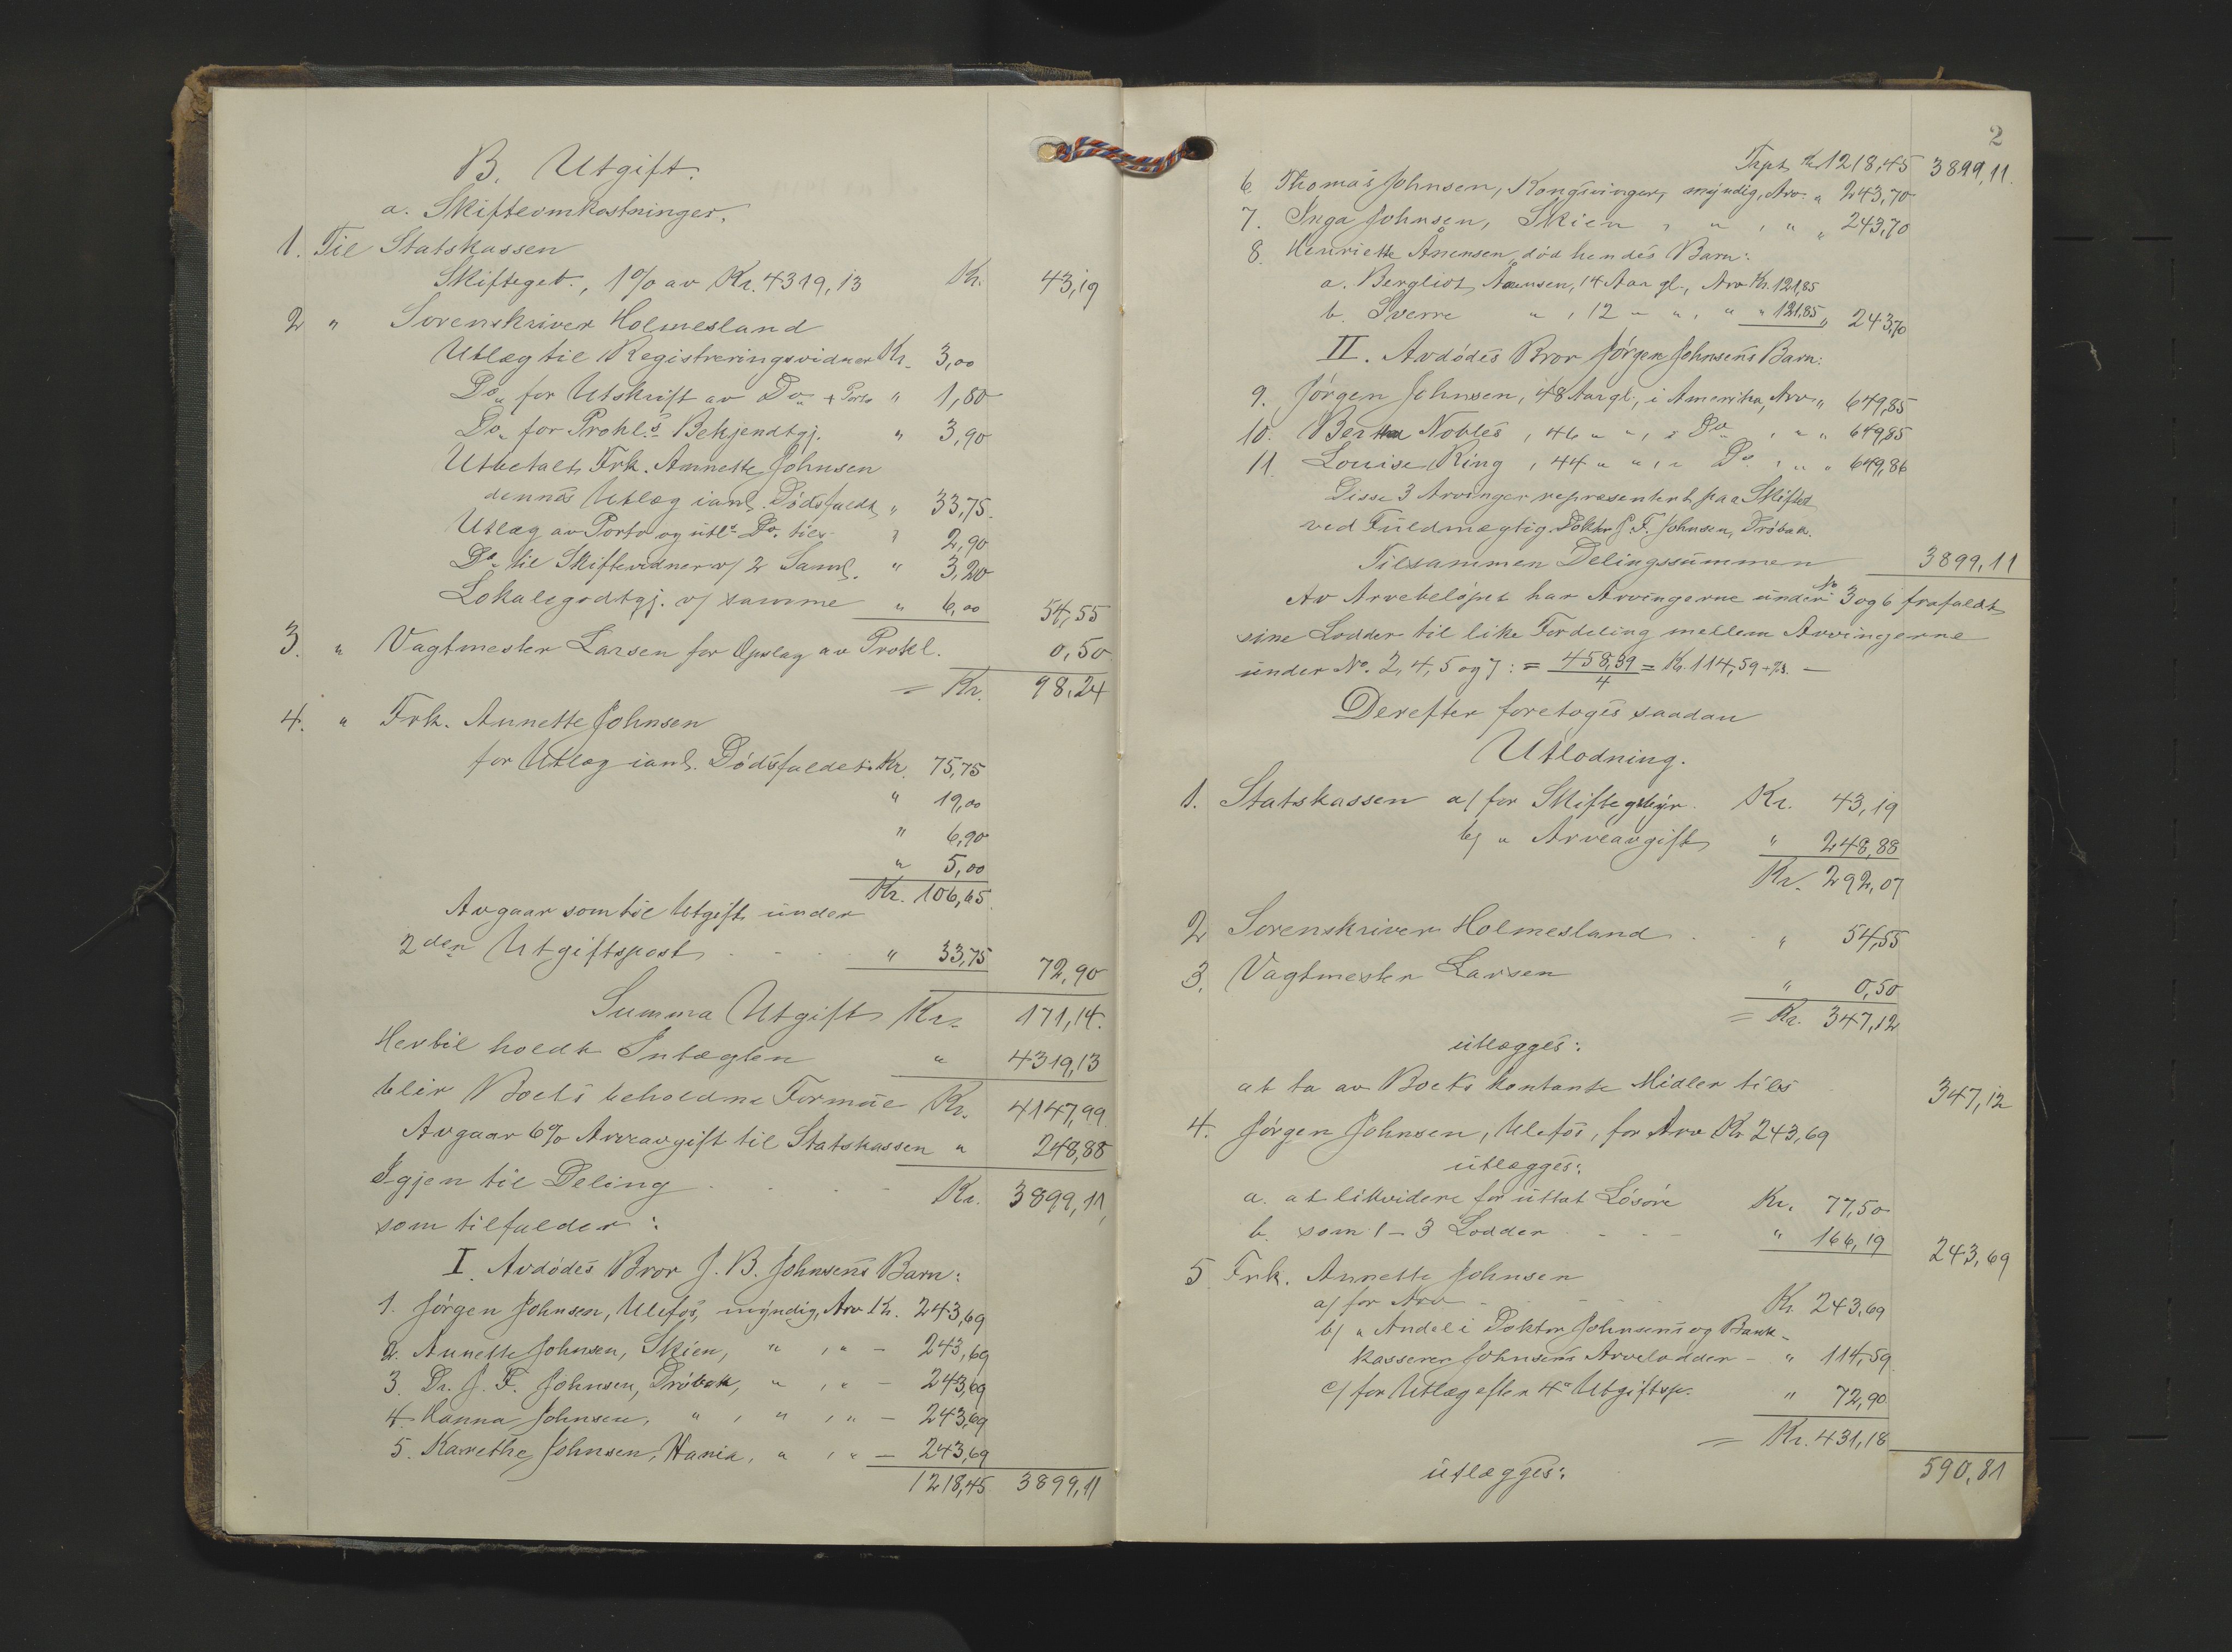 B. Utgift.
a. Skifteomkostninger.
1. Til Statskassen
Skiftegeb., 1% av Kr. 4319,13 Kr. 43,19
2 " Sorenskriver Holmesland
Utlæg til Registreringsvidner Kr. 3,00
Do. for Utskrift av Do. + Porto " 1,80
Do. for Prokl.s Bekjendtgj. " 3,90
Utbetalt Frk. Annette Johnsen
dennes Utlæg ianl. Dødsfaldt " 33,75.
Utlæg av Porto og utl. Do. tils. " 2,90
Do. til Skiftevidner v/ 2 Saml. " 3,20
Lokalegodtgj. v/ samme " 6,00 54,55
3. " Vagtmester Larsen for Opslag av Prokl. 0,50.
= Kr. 98,24
4. " Frk. Annette Johnsen
for Utlæg ianl. Dødsfaldet: Kr. 75,75
" 19,00
" 6,90
" 5,00
Kr. 106,65.
Avgaar som til Utgift under
2den Utgiftspost . . . " 33,75 72,90
Summa Utgift Kr. 171,14.
Hertil holdt Indtægten " 4319,13
blir Boets beholdne Formue Kr. 4147,99
Avgaar 6% Arveavgift til Statskassen " 248,88
Igjen til Deling . . . Kr. 3899,11,
som tilfalder:
I. Avdødes Bror J. B. Johnsens Barn:
1. Jørgen Johnsen, Ulefos, myndig, Arv Kr. 243,69
2. Annette Johnsen, Skien, " , " – 243,69
3. Dr. J. F. Johnsen, Drøbak, " , " – 243,69
4. Hanna Johnsen, " , " , " – 243,69
5. Karethe Johnsen, , " , " – 243,69
1218,45 3899,11
2
Trpt. Kr. 1218,45 3899,11.
6. Thomas Johnsen, Kongsvinger, myndig, Arv " 243,70
7. Inga Johnsen, Skien , " , " " 243,70
8. Henriette Anensen, død hendes Barn:
a. Bergliot Anensen, 14 Aar gl., Arv Kr. 121,85
b. Sverre " , 12 " " , " " 121,85 " 243,70
II. Avdødes Bror Jørgen Johnsens Barn:
9. Jørgen Johnsen, 48 Aar gl., i Amerika, Arv " 649,85
10. Bertha Nobles , 46 " " , i Do. , " " 649,85
11. Louise Ring , 44 " " , " Do. , " " 649,86
Disse 3 Arvinger repræsentert paa Skiftet
ved Fuldmægtig Doktor J. F. Johnsen, Drøbak.
Tilsammen Delingssummen 3899,11
Av Arvebeløpet har Arvingerne under No 3 og 6 frafaldt
sine Lodder til like Fordeling mellem Arvingerne
under No. 2, 4, 5 og 7: = 458,39/4 = Kr. 114,59 + . –
Derefter foretoges saadan
Utlodning.
1. Statskassen a/ for Skiftegebyr. Kr. 43,19
b/ " Arveavgift " 248,88
Kr. 292,07
2 Sorenskriver Holmesland . . " 54,55
3. Vagtmester Larsen " 0,50
= Kr. 347,12
utlægges:
at ta av Boets kontante Midler tils 347,12
4. Jørgen Johnsen, Ulefos, for Arv Kr. 243,69
utlægges:
a. at likvidere for uttat Løsøre Kr. 77,50
b. som 1–3 Lodder . . . " 166,19 243,69
5 Frk. Annette Johnsen
a/ for Arv . . . Kr. 243,69
b/ " Andel i Doktor Johnsens og Bank-
kasserer Johnsens Arvelodder – " 114,59
c/ for Utlæg efter 4. Utgiftsp. " 72,90
= Kr. 431,18
utlægges: 590,81